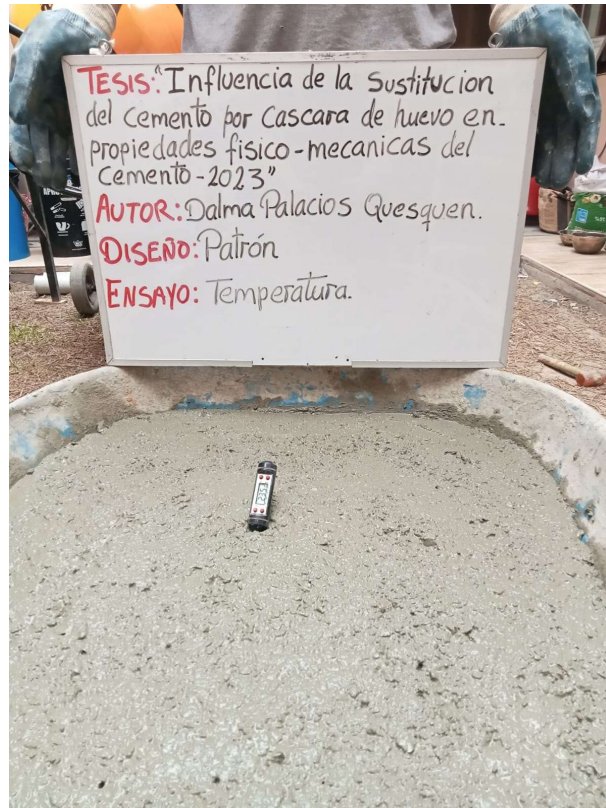 TESIS: "Influencia de la Sustitucion
del cemento por Cascara de huevo en-
propiedades fisico-mecanicas del
Cemento-2023"
AUTOR: Dalma Palacios Quesquen.
DISEÑO: Patrón
ENSAYO: Temperatura.